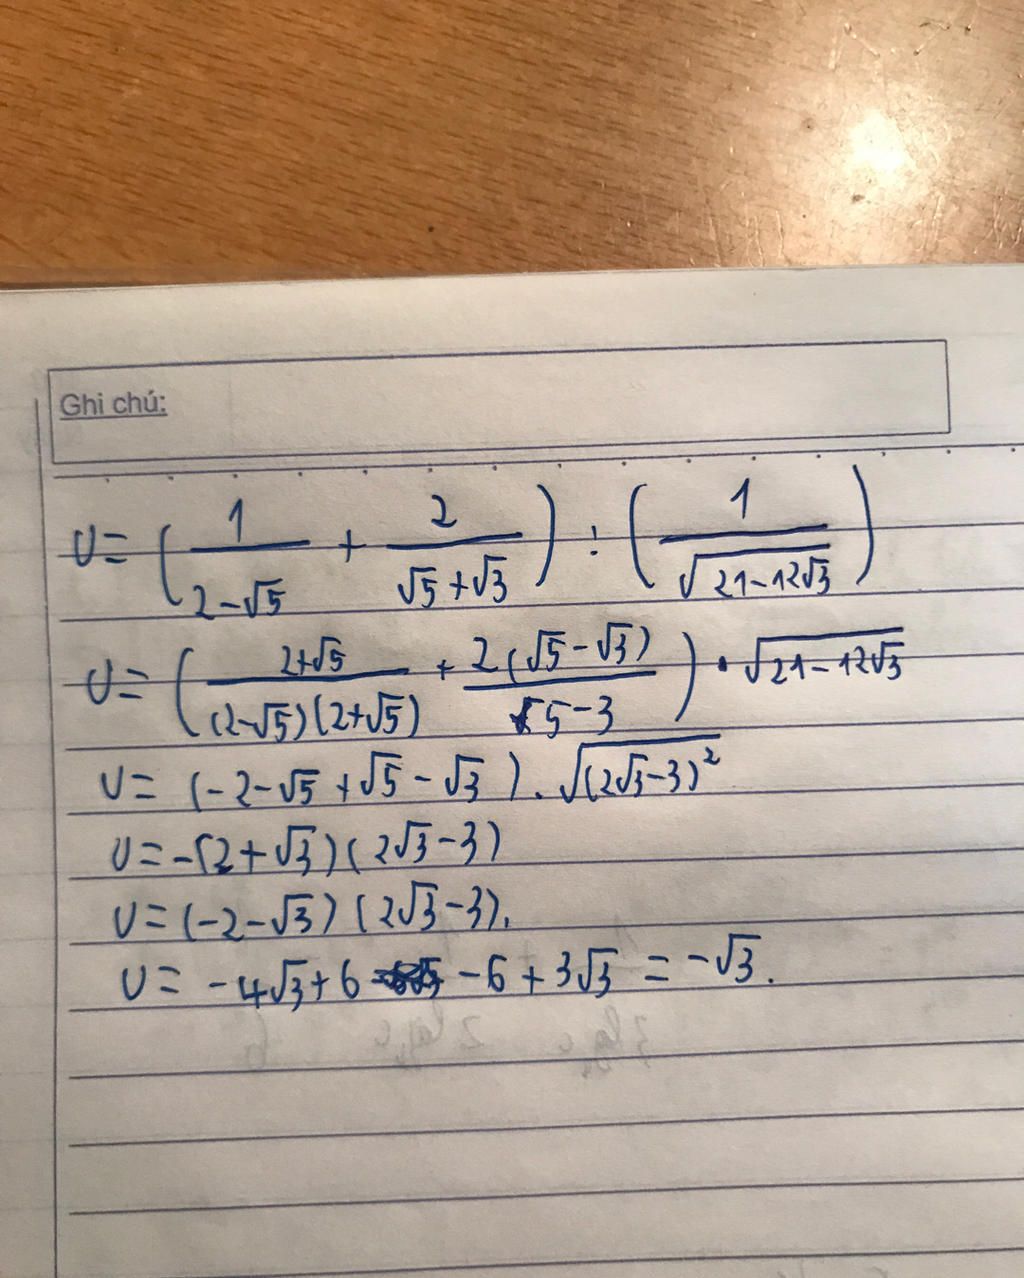 Ghi chú:
U = (1/(2-√5) + 2/(√5+√3)) : (1/√(21-12√3))
U = ((2+√5)/((2-√5)(2+√5)) + 2(√5-√3)/(5-3)) · √(21-12√3)
U = (-2-√5+√5-√3). √((2√3-3)²)
U = -(2+√3)(2√3-3)
U = (-2-√3)(2√3-3).
U = -4√3+6 -6+3√3 = -√3.